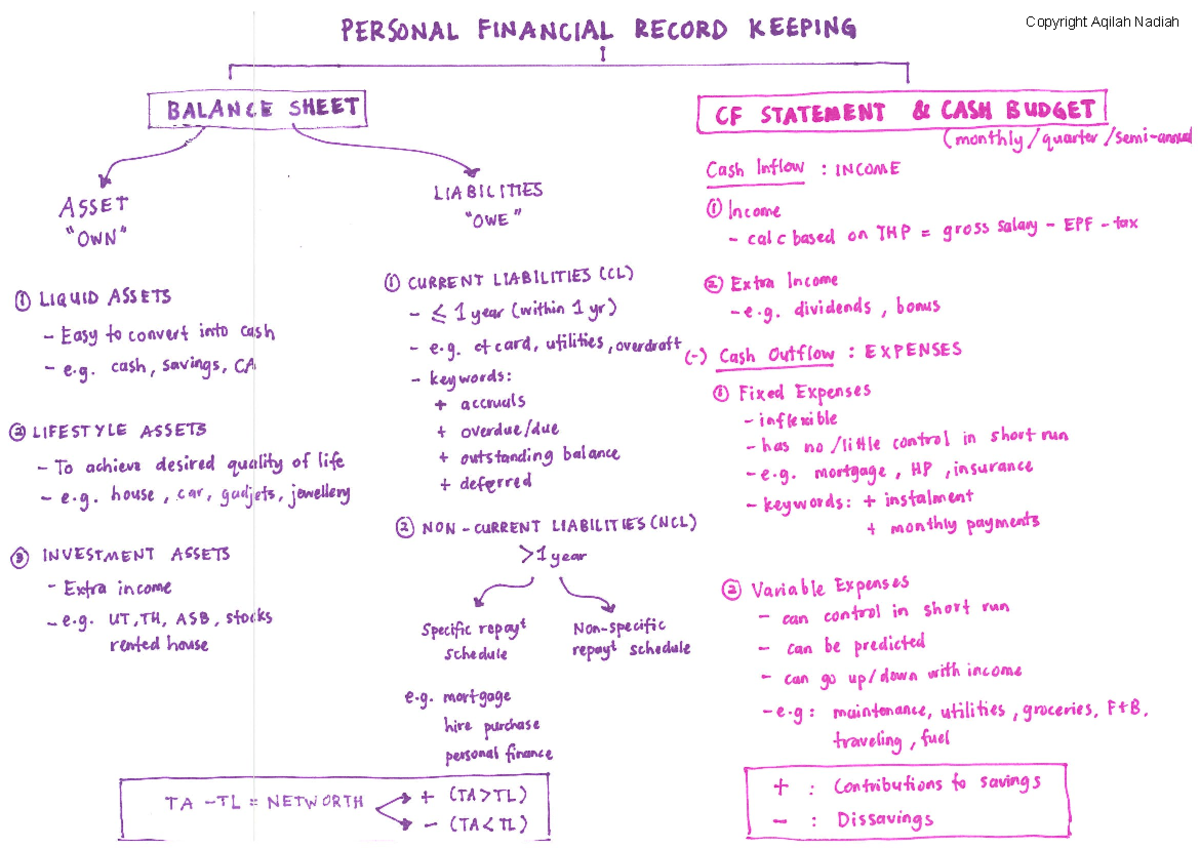 Copyright Aqilah Nadiah
PERSONAL FINANCIAL RECORD KEEPING
BALANCE SHEET
ASSET
"OWN"
LIABILITIES
"OWE"
① LIQUID ASSETS
- Easy to convert into cash
- e.g. cash, savings, CA
② LIFESTYLE ASSETS
- To achieve desired quality of life
- e.g. house, car, gadjets, jewellery
③ INVESTMENT ASSETS
- Extra income
- e.g. UT, TH, ASB, stocks
rented house
① CURRENT LIABILITIES (CL)
- ≤ 1 year (within 1 yr)
- e.g. ct card, utilities, overdraft
- keywords:
+ accruals
+ overdue/due
+ outstanding balance
+ deferred
② NON-CURRENT LIABILITIES (NCL)
>1 year
Specific repayt
schedule
Non-specific
repayt schedule
e.g. mortgage
hire purchase
personal finance
TA - TL = NETWORTH
+ (TA>TL)
- (TA<TL)
CF STATEMENT & CASH BUDGET
(monthly/quarter/semi-annual
Cash Inflow : INCOME
① Income
- calc based on THP = gross salary - EPF - tax
② Extra Income
- e.g. dividends, bonus
(-) Cash Outflow : EXPENSES
① Fixed Expenses
- inflexible
- has no/little control in short run
- e.g. mortgage, HP, insurance
- keywords: + instalment
+ monthly payments
② Variable Expenses
- can control in short run
- can be predicted
- can go up/down with income
- e.g: maintenance, utilities, groceries, F+B,
traveling, fuel
+ : Contributions to savings
- : Dissavings